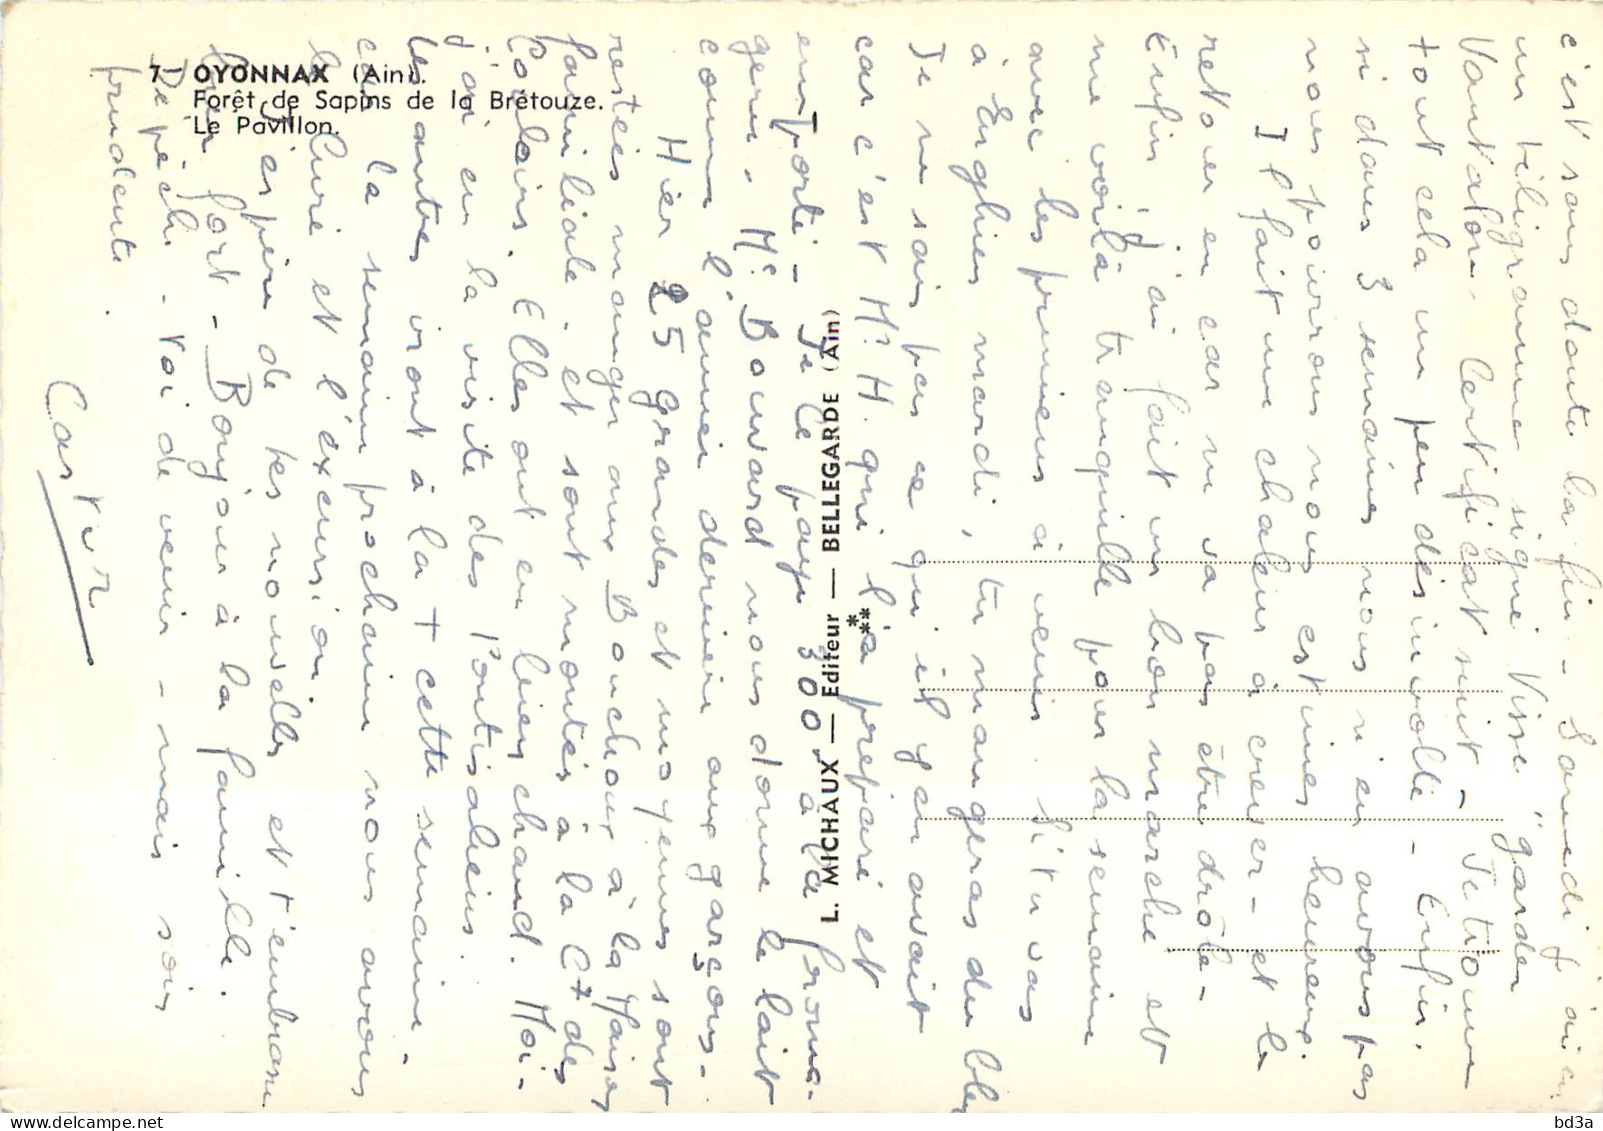 7 - OYONNAX (Ain).
Forêt de Sapins de la Brétouze.
Le Pavillon.
L. MICHAUX — Editeur — BELLEGARDE (Ain)
c'est sans doute la fin - Samedi j'ai eu
un téligramme signé Visse "garder
Certificat suit - Je trouve
tout cela un peu désinvolte - Enfin,
si dans 3 semaines nous n'en avons pas
nous pourrons nous estimes heureux.
Il fait une chaleur à crever - et le
retour en car ne va pas être drôle -
Enfin j'ai fait un bon marché et
me voilà tranquille pour la semaine
avec les premiers à venir. Si tu vas
à Enghien mardi, tu mangeras du
Je ne sais pas ce qu'il y en avait
car c'est Me H. qui l'a préparé et
emporté - Je le paye 300 à la froma-
gerie. Me Bouvard nous donne le lait
comme l'année dernière aux garçons -
Hier 25 grandes et moyennes sont
restées manger aux Bouchoux à la Maison
familiale - et sont montés à la Cx des
Couloirs. Elles ont eu bien chaud. Moi -
j'ai eu la visite des
les autres iront à la + cette semaine -
car la semaine prochaine nous avons
le Curé et l'excursion.
J'espère de tes nouvelles et t'embrasse
bien fort - Bonjour à la famille.
Dépêche - toi de venir - mais sois
prudente.